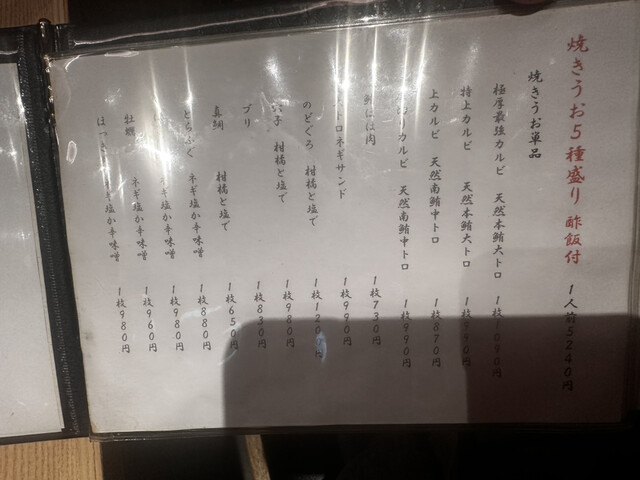 焼きうお5種盛り 酢飯付 1人前5240円
焼きうお単品
極厚最強カルビ 天然本鮪大トロ 1枚1090円
特上カルビ 天然本鮪大トロ 1枚990円
上カルビ 天然南鮪中トロ 1枚870円
カルビ 天然南鮪中トロ 1枚990円
ほほ肉 1枚730円
トロネギサンド 1枚990円
のどぐろ 柑橘と塩で
穴子 柑橘と塩で 1枚980円
ブリ 1枚830円
真鯛 柑橘と塩で 1枚650円
とらふぐ ネギ塩か辛味噌 1枚880円
ネギ塩か辛味噌 1枚980円
牡蠣 ネギ塩か辛味噌 1枚960円
ほっき ネギ塩か辛味噌 1枚980円